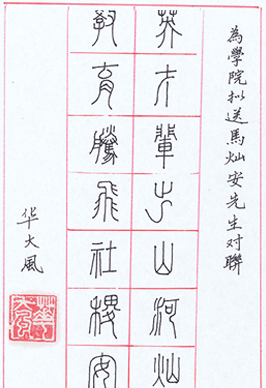 為學院拟送馬灿安先生对聯
英才輩出山河灿
教育騰飛社稷安
华大風